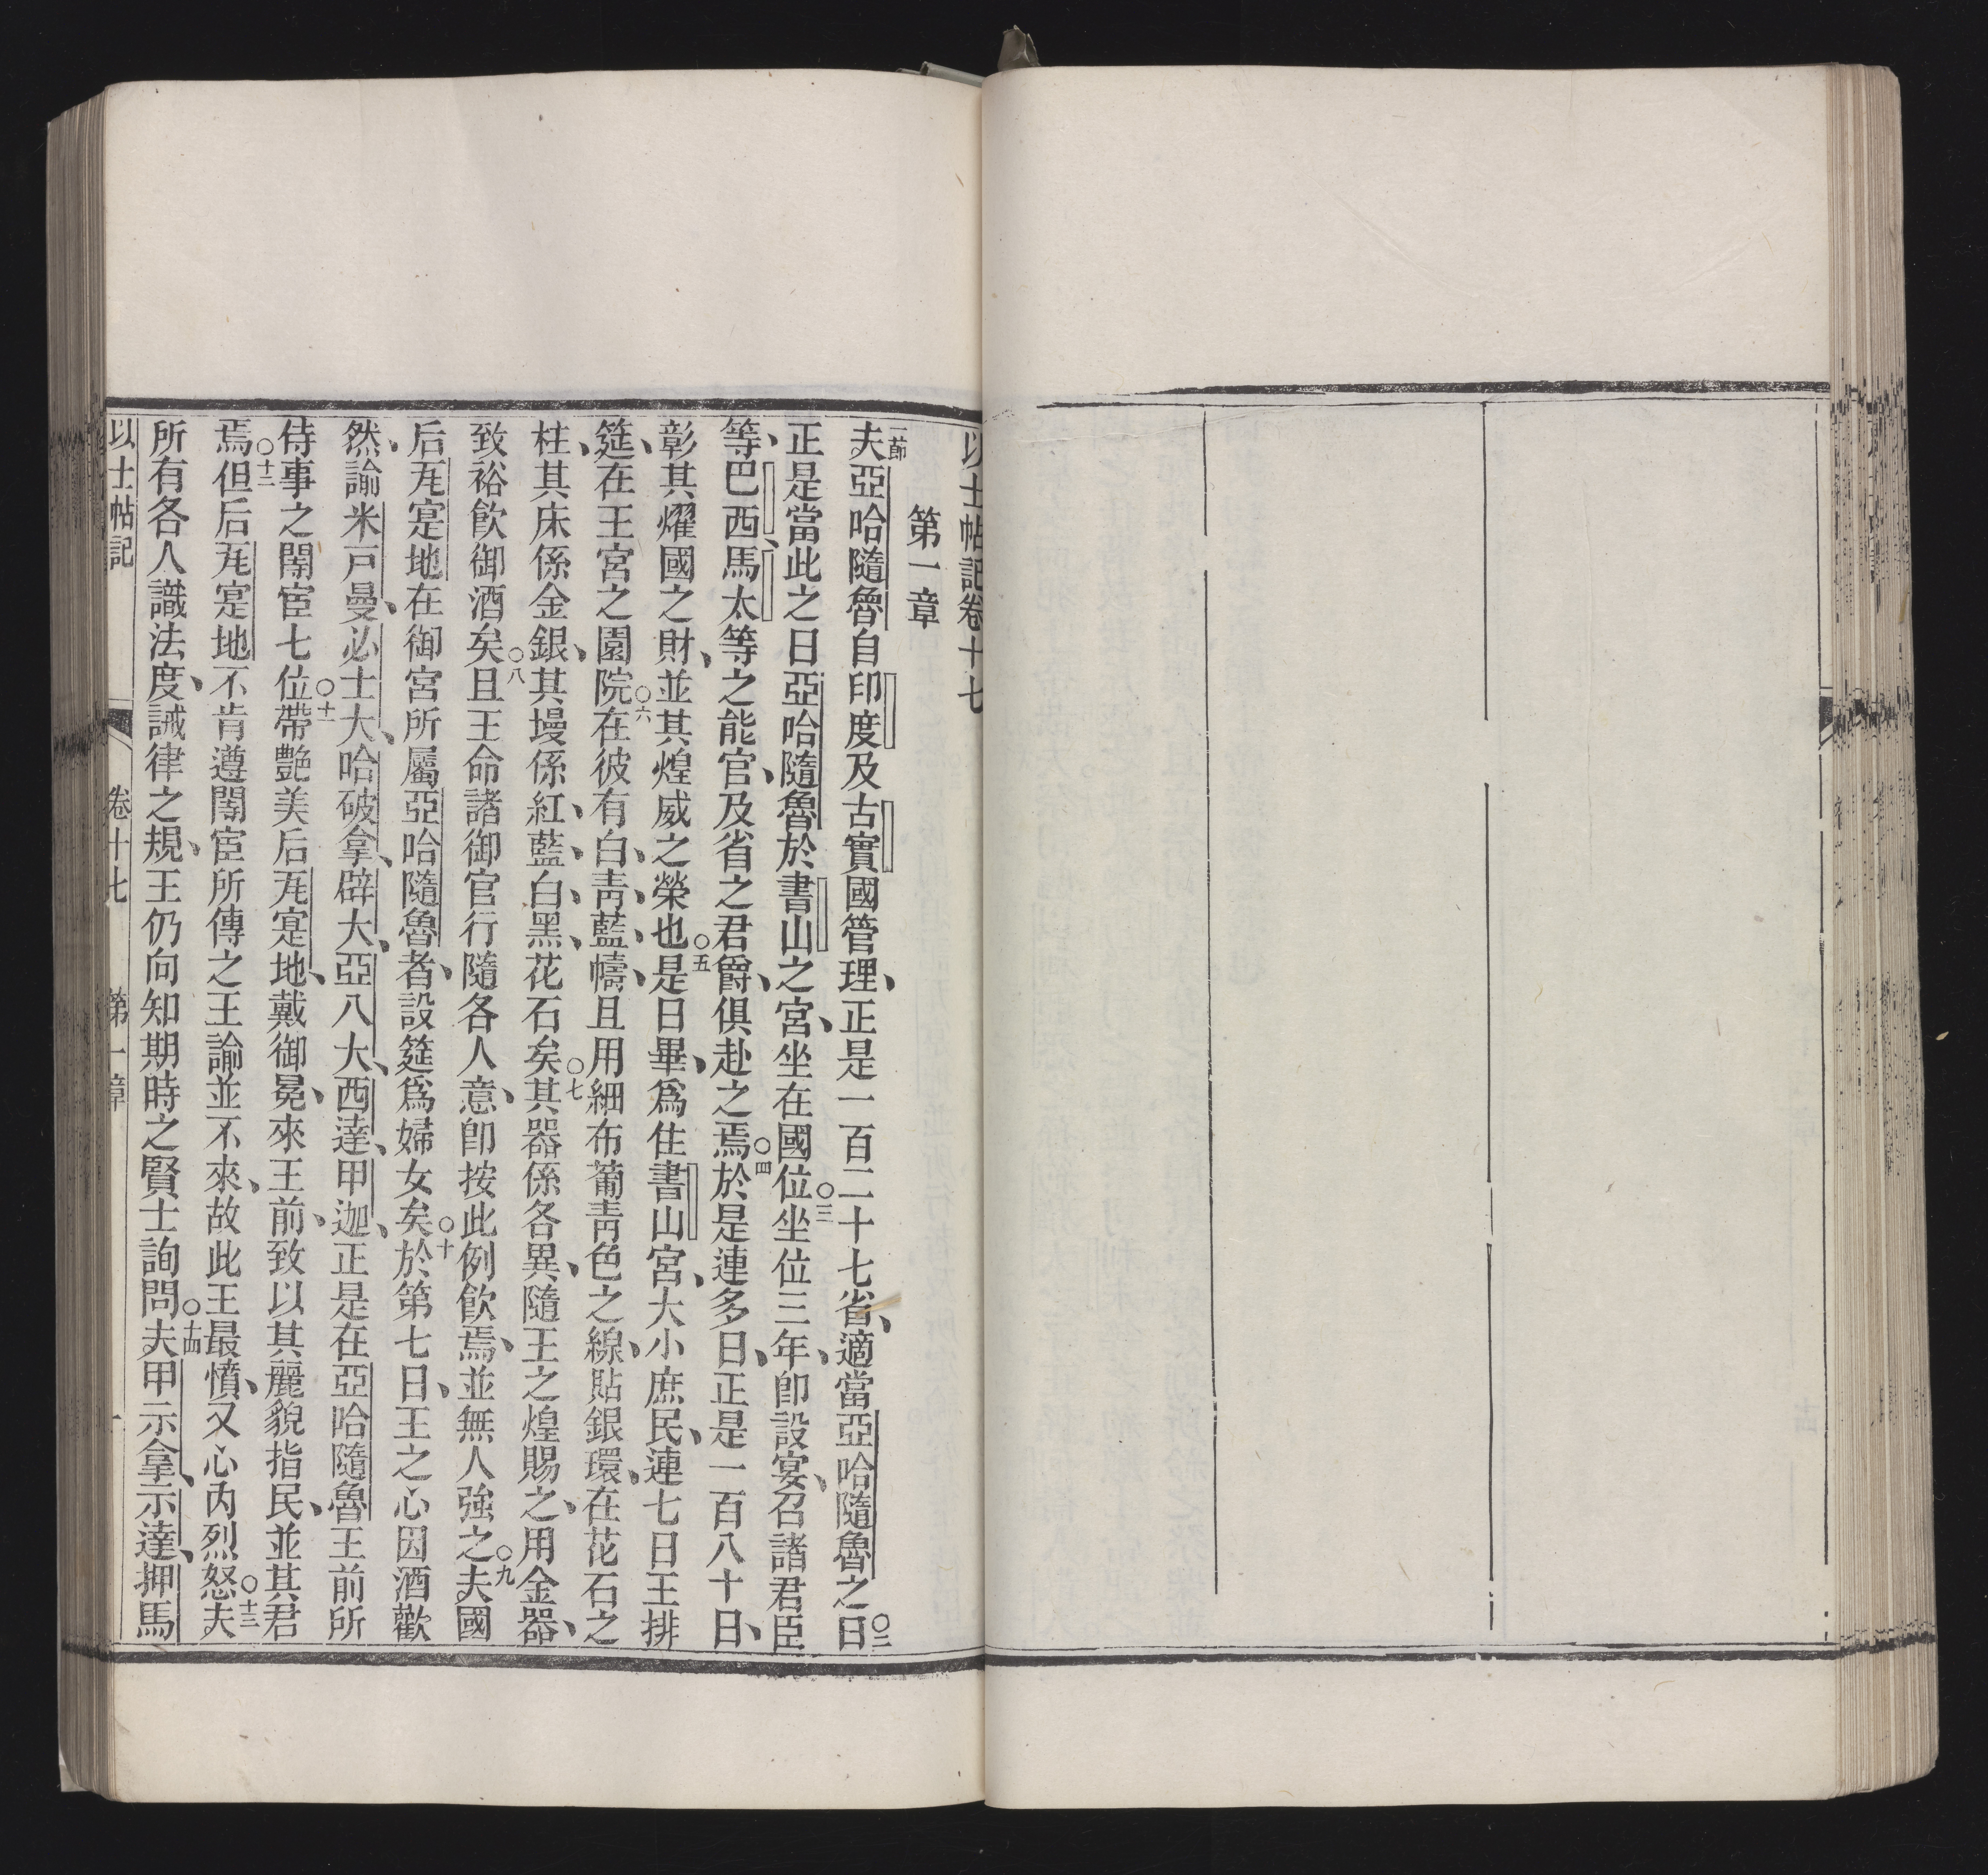 以士帖記卷十七
第一章
一節夫亞哈隨魯自印度及古實國管理、正是一百二十七省、適當亞哈隨魯之日○二
正是當此之日亞哈隨魯於書山之宮、坐在國位○三坐位三年、即設宴、召諸君臣
等、巴西、馬太等之能官、及省之君爵、俱赴之焉○四於是連多日、正是一百八十日、
彰其燿國之財、並其煌威之榮也○五是日畢、為住書山宮、大小庶民、連七日王排
筵、在王宮之園院○六在彼有白、青、藍、幬、且用細布葡青色之線、貼銀環、在花石之
柱、其床係金銀、其墁係紅、藍、白、黑、花石矣○七其器係各異、隨王之煌賜之、用金器、
致裕飲御酒矣○八且王命諸御官行隨各人意、即按此例飲焉、並無人強之○九夫國
后瓦寔地在御宮所屬亞哈隨魯者、設筵為婦女矣○十於第七日、王之心因酒歡
然、諭米戸曼、必士大、哈破拿、辟大、亞八大、西達、甲迦、正是在亞哈隨魯王前所
侍事之閹宦七位○十一帶艷美后瓦寔地、戴御冕、來王前、致以其麗貌指民、並其君
焉○十二但后瓦寔地不肯遵閹宦所傳之王諭並不來、故此王最憤、又心內烈怒○十三夫
所有各人識法度、誡律之規、王仍向知期時之賢士詢問○十四夫甲示拿、示達、押馬
以士帖記 卷十七 第一章 一